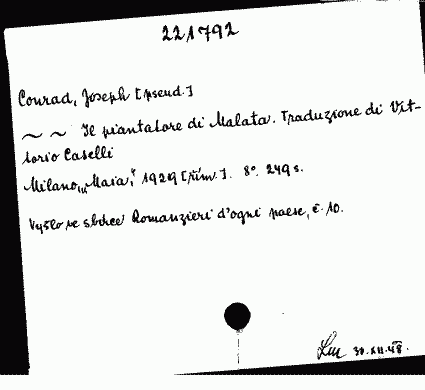 221792
Conrad, Joseph [pseud.]
~ ~ Il piantatore di Malata. Traduzione di Vit-
torio Caselli
Milano, „Maia", 1929 [tím.]. 8°. 249 s.
Vyšlo ve sbírce Romanzieri d'ogni paese, č. 10.
30.XII.48.